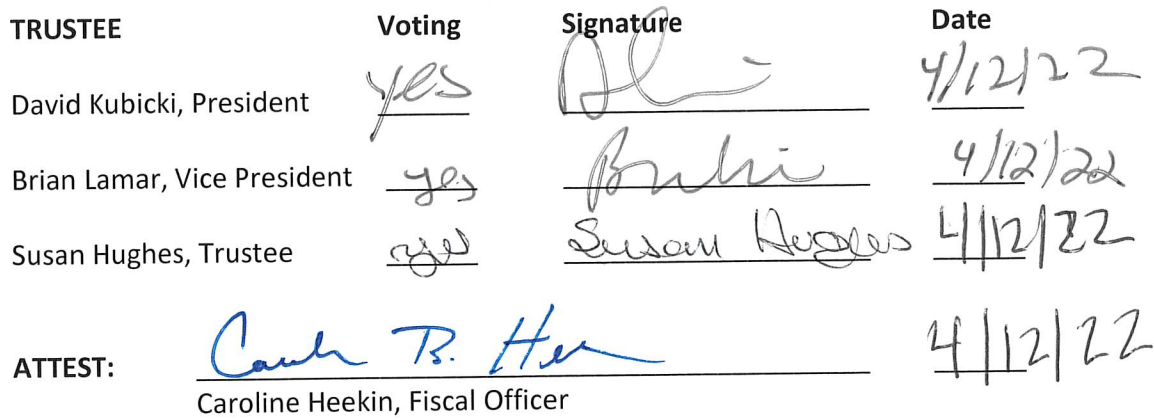 TRUSTEE Voting Signature Date
David Kubicki, President yes 4/12/22
Brian Lamar, Vice President yes 4/12/22
Susan Hughes, Trustee yes Susan Hughes 4/12/22
ATTEST: B. 4/12/22
Caroline Heekin, Fiscal Officer